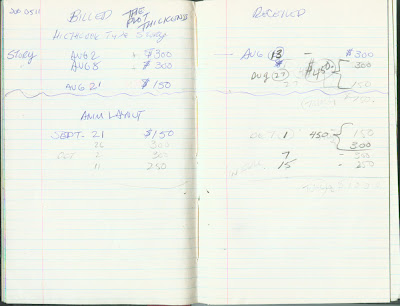 BILLED THE PLOT THICKENS
HITCHCOCK TYPE STORY
STORY AUG 2 - $300
AUG 8 - $300
AUG 21 $150
ANIM LAYOUT
SEPT - 21 $150
26 300
OCT 2 300
11 250
RECEIVED
AUG 13 - $300
300
Aug 27 $450
27 150
OCT 1 450 150
300
7 - 300
15 - 250